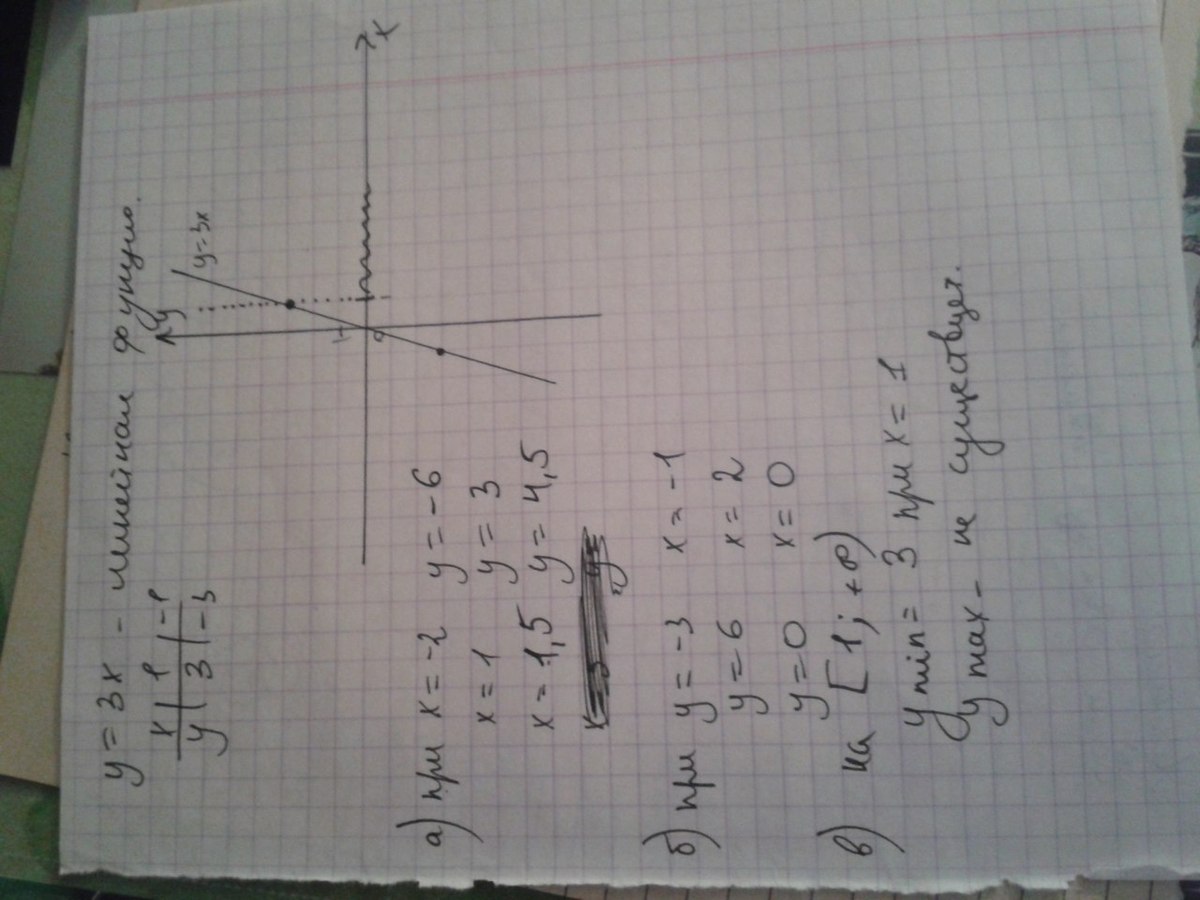 y = 3x - линейная функция.
x | 1 | -1
y | 3 | -3
y
y=3x
x
1
0
а) при x = -2 y = -6
x = 1 y = 3
x = 1,5 y = 4,5
б) при y = -3 x = -1
y = 6 x = 2
y = 0 x = 0
в) на [1; +∞)
y min = 3 при x = 1
y max - не существует.